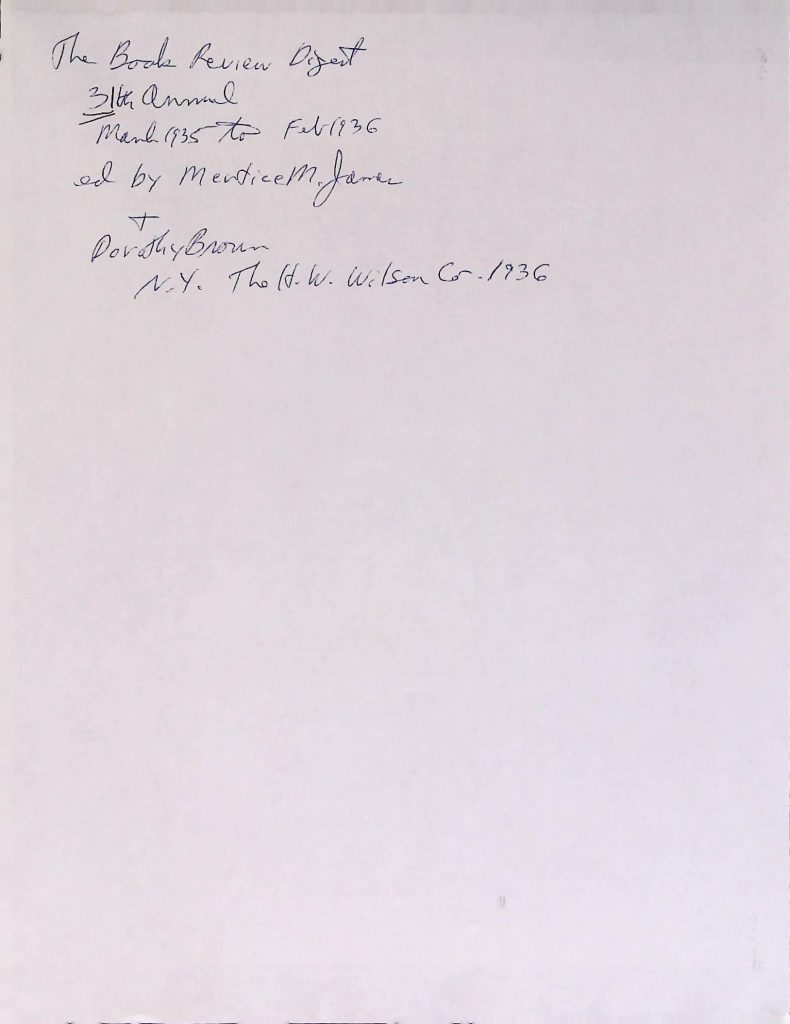 The Book Review Digest
31th Annual
March 1935 to Feb 1936
ed by Mertice M. James
+
Dorothy Brown
N.Y. The H.W. Wilson Co. 1936